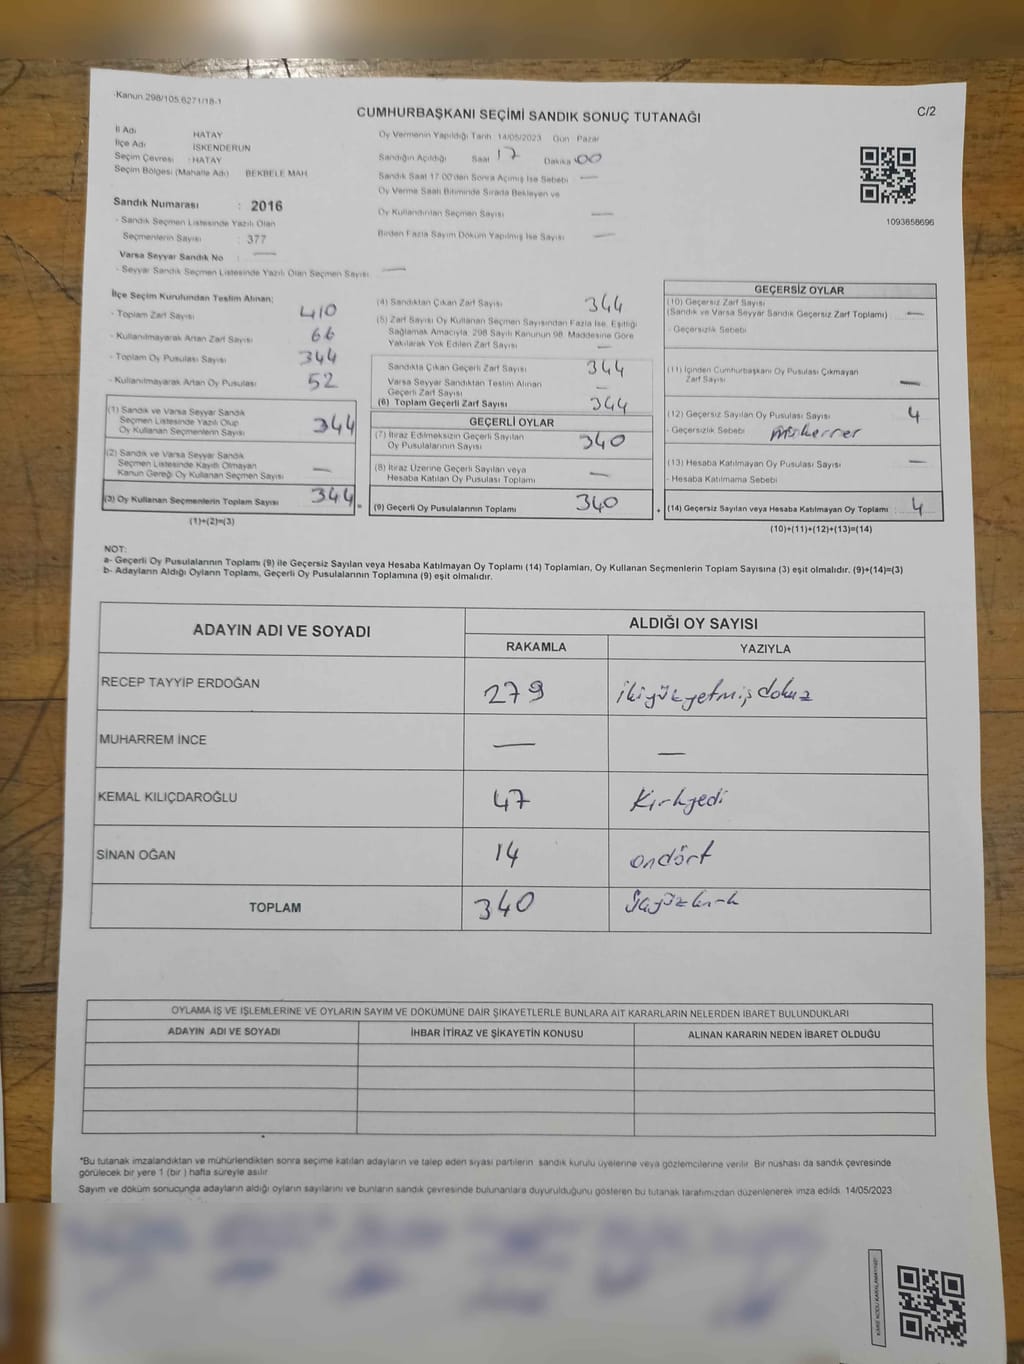 Kanun 298/105.6271/18-1
CUMHURBAŞKANI SEÇİMİ SANDIK SONUÇ TUTANAĞI
C/2
İl Adı HATAY
İlçe Adı İSKENDERUN
Seçim Çevresi : HATAY
Seçim Bölgesi (Mahalle Adı) BEKBELE MAH
Sandık Numarası : 2016
- Sandık Seçmen Listesinde Yazılı Olan
Seçmenlerin Sayısı : 377
Varsa Seyyar Sandık No : —
- Seyyar Sandık Seçmen Listesinde Yazılı Olan Seçmen Sayısı —
Oy Vermenin Yapıldığı Tarih 14/05/2023 Gün Pazar
Sandığın Açıldığı Saat 17 Dakika 00
Sandık Saat 17:00'den Sonra Açımış İse Sebebi : —
Oy Verme Saati Bitiminde Sırada Bekleyen ve
Oy Kullandırılan Seçmen Sayısı —
Birden Fazla Sayım Döküm Yapılmış İse Sayısı —
1093658696
İlçe Seçim Kurulundan Teslim Alınan;
- Toplam Zarf Sayısı 410
- Kullanılmayarak Artan Zarf Sayısı 66
- Toplam Oy Pusulası Sayısı 344
- Kullanılmayarak Artan Oy Pusulası 52
(1) Sandık ve Varsa Seyyar Sandık
Seçmen Listesinde Yazılı Olup
Oy Kullanan Seçmenlerin Sayısı 344
(2) Sandık ve Varsa Seyyar Sandık
Seçmen Listesinde Kayıtlı Olmayan
Kanun Gereği Oy Kullanan Seçmen Sayısı —
(3) Oy Kullanan Seçmenlerin Toplam Sayısı 344
(1)+(2)=(3)
(4) Sandıktan Çıkan Zarf Sayısı 344
(5) Zarf Sayısı Oy Kullanan Seçmen Sayısından Fazla İse, Eşitliği
Sağlamak Amacıyla, 298 Sayılı Kanunun 98. Maddesine Göre
Yakılarak Yok Edilen Zarf Sayısı —
Sandıkta Çıkan Geçerli Zarf Sayısı 344
Varsa Seyyar Sandıktan Teslim Alınan
Geçerli Zarf Sayısı —
(6) Toplam Geçerli Zarf Sayısı 344
GEÇERLİ OYLAR
(7) İtiraz Edilmeksizin Geçerli Sayılan
Oy Pusulalarının Sayısı 340
(8) İtiraz Üzerine Geçerli Sayılan veya
Hesaba Katılan Oy Pusulası Toplamı —
(9) Geçerli Oy Pusulalarının Toplamı 340
GEÇERSİZ OYLAR
(10) Geçersiz Zarf Sayısı
(Sandık ve Varsa Seyyar Sandık Geçersiz Zarf Toplamı) —
- Geçersizlik Sebebi
(11) İçinden Cumhurbaşkanı Oy Pusulası Çıkmayan
Zarf Sayısı —
(12) Geçersiz Sayılan Oy Pusulası Sayısı 4
- Geçersizlik Sebebi mükerrer
(13) Hesaba Katılmayan Oy Pusulası Sayısı —
- Hesaba Katılmama Sebebi
(14) Geçersiz Sayılan veya Hesaba Katılmayan Oy Toplamı : 4
(10)+(11)+(12)+(13)=(14)
NOT:
a- Geçerli Oy Pusulalarının Toplamı (9) ile Geçersiz Sayılan veya Hesaba Katılmayan Oy Toplamı (14) Toplamları, Oy Kullanan Seçmenlerin Toplam Sayısına (3) eşit olmalıdır. (9)+(14)=(3)
b- Adayların Aldığı Oyların Toplamı, Geçerli Oy Pusulalarının Toplamına (9) eşit olmalıdır.
ADAYIN ADI VE SOYADI ALDIĞI OY SAYISI
RAKAMLA YAZIYLA
RECEP TAYYİP ERDOĞAN 279 ikiyüzyetmişdokuz
MUHARREM İNCE — —
KEMAL KILIÇDAROĞLU 47 Kırkyedi
SİNAN OĞAN 14 ondört
TOPLAM 340 üçyüzkırk
OYLAMA İŞ VE İŞLEMLERİNE VE OYLARIN SAYIM VE DÖKÜMÜNE DAİR ŞİKAYETLERLE BUNLARA AİT KARARLARIN NELERDEN İBARET BULUNDUKLARI
ADAYIN ADI VE SOYADI İHBAR İTİRAZ VE ŞİKAYETİN KONUSU ALINAN KARARIN NEDEN İBARET OLDUĞU
*Bu tutanak imzalandıktan ve mühürlendikten sonra seçime katılan adayların ve talep eden siyasi partilerin sandık kurulu üyelerine veya gözlemcilerine verilir. Bir nüshası da sandık çevresinde
görülecek bir yere 1 (bir ) hafta süreyle asılır.
Sayım ve döküm sonucunda adayların aldığı oyların sayılarını ve bunların sandık çevresinde bulunanlara duyurulduğunu gösteren bu tutanak tarafımızdan düzenlenerek imza edildi. 14/05/2023